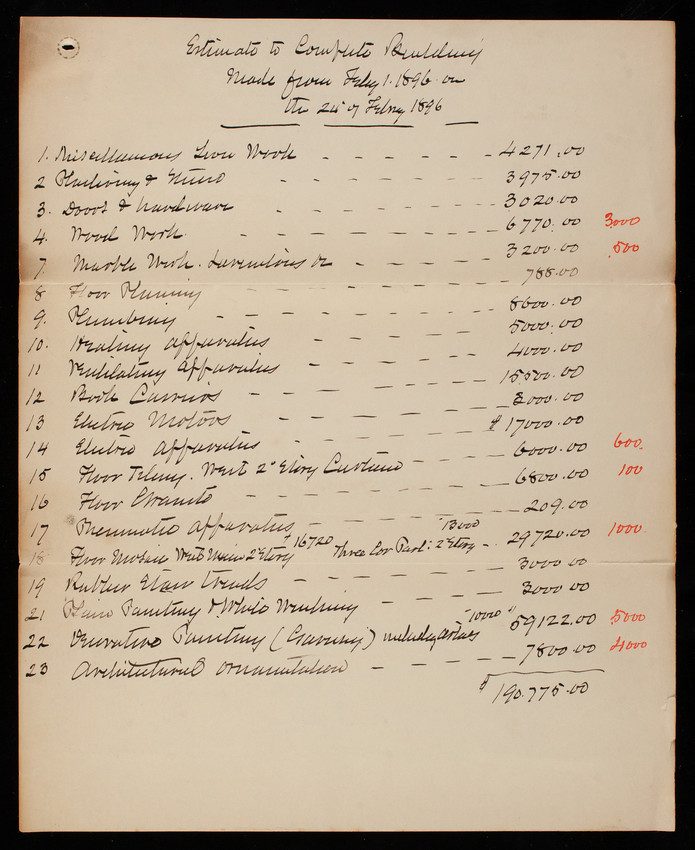 Estimate to Complete Building
Made from Feby 1. 1896 on
the 24" of Febry 1896
1. Miscellaneous Iron Work - - - - - 4271.00
2 Plastering & Stucco - - - - - 3975.00
3. Doors & hardware - - - - - 3020.00
4. Wood Work - - - - - 6770.00 3000
7. Marble Work. - - - - 3200.00 500
8 Floor - - - - - 788.00
9. Plumbing - - - - - 8600.00
10. Heating apparatus - - - - - 5000.00
11 Ventilating apparatus - - - - 4000.00
12 Book Carriers - - - - - 15,500.00
13 Electric Motors - - - - - 3000.00
14 Electric apparatus - - - - $17000.00
15 Floor Tiling. West 2" Story Curtains - - 6000.00 600
16 Floor - - - - - 6800.00 100
17 Pneumatic apparatus - - - - 209.00
18 Floor Mosaic West Main 2" Story $16720 Three Cor Pavl: 2" Story 13000 - 29720.00 1000.
19 Rubber Stair treads - - - - 3000.00
21 Plain Painting & White Washing - - - - 3000.00
22 Decorative Painting (Casarin) including "10000" 59122.00 5000
23 Architectural ornamentation - - - - - 7800.00 4000
$190.775.00